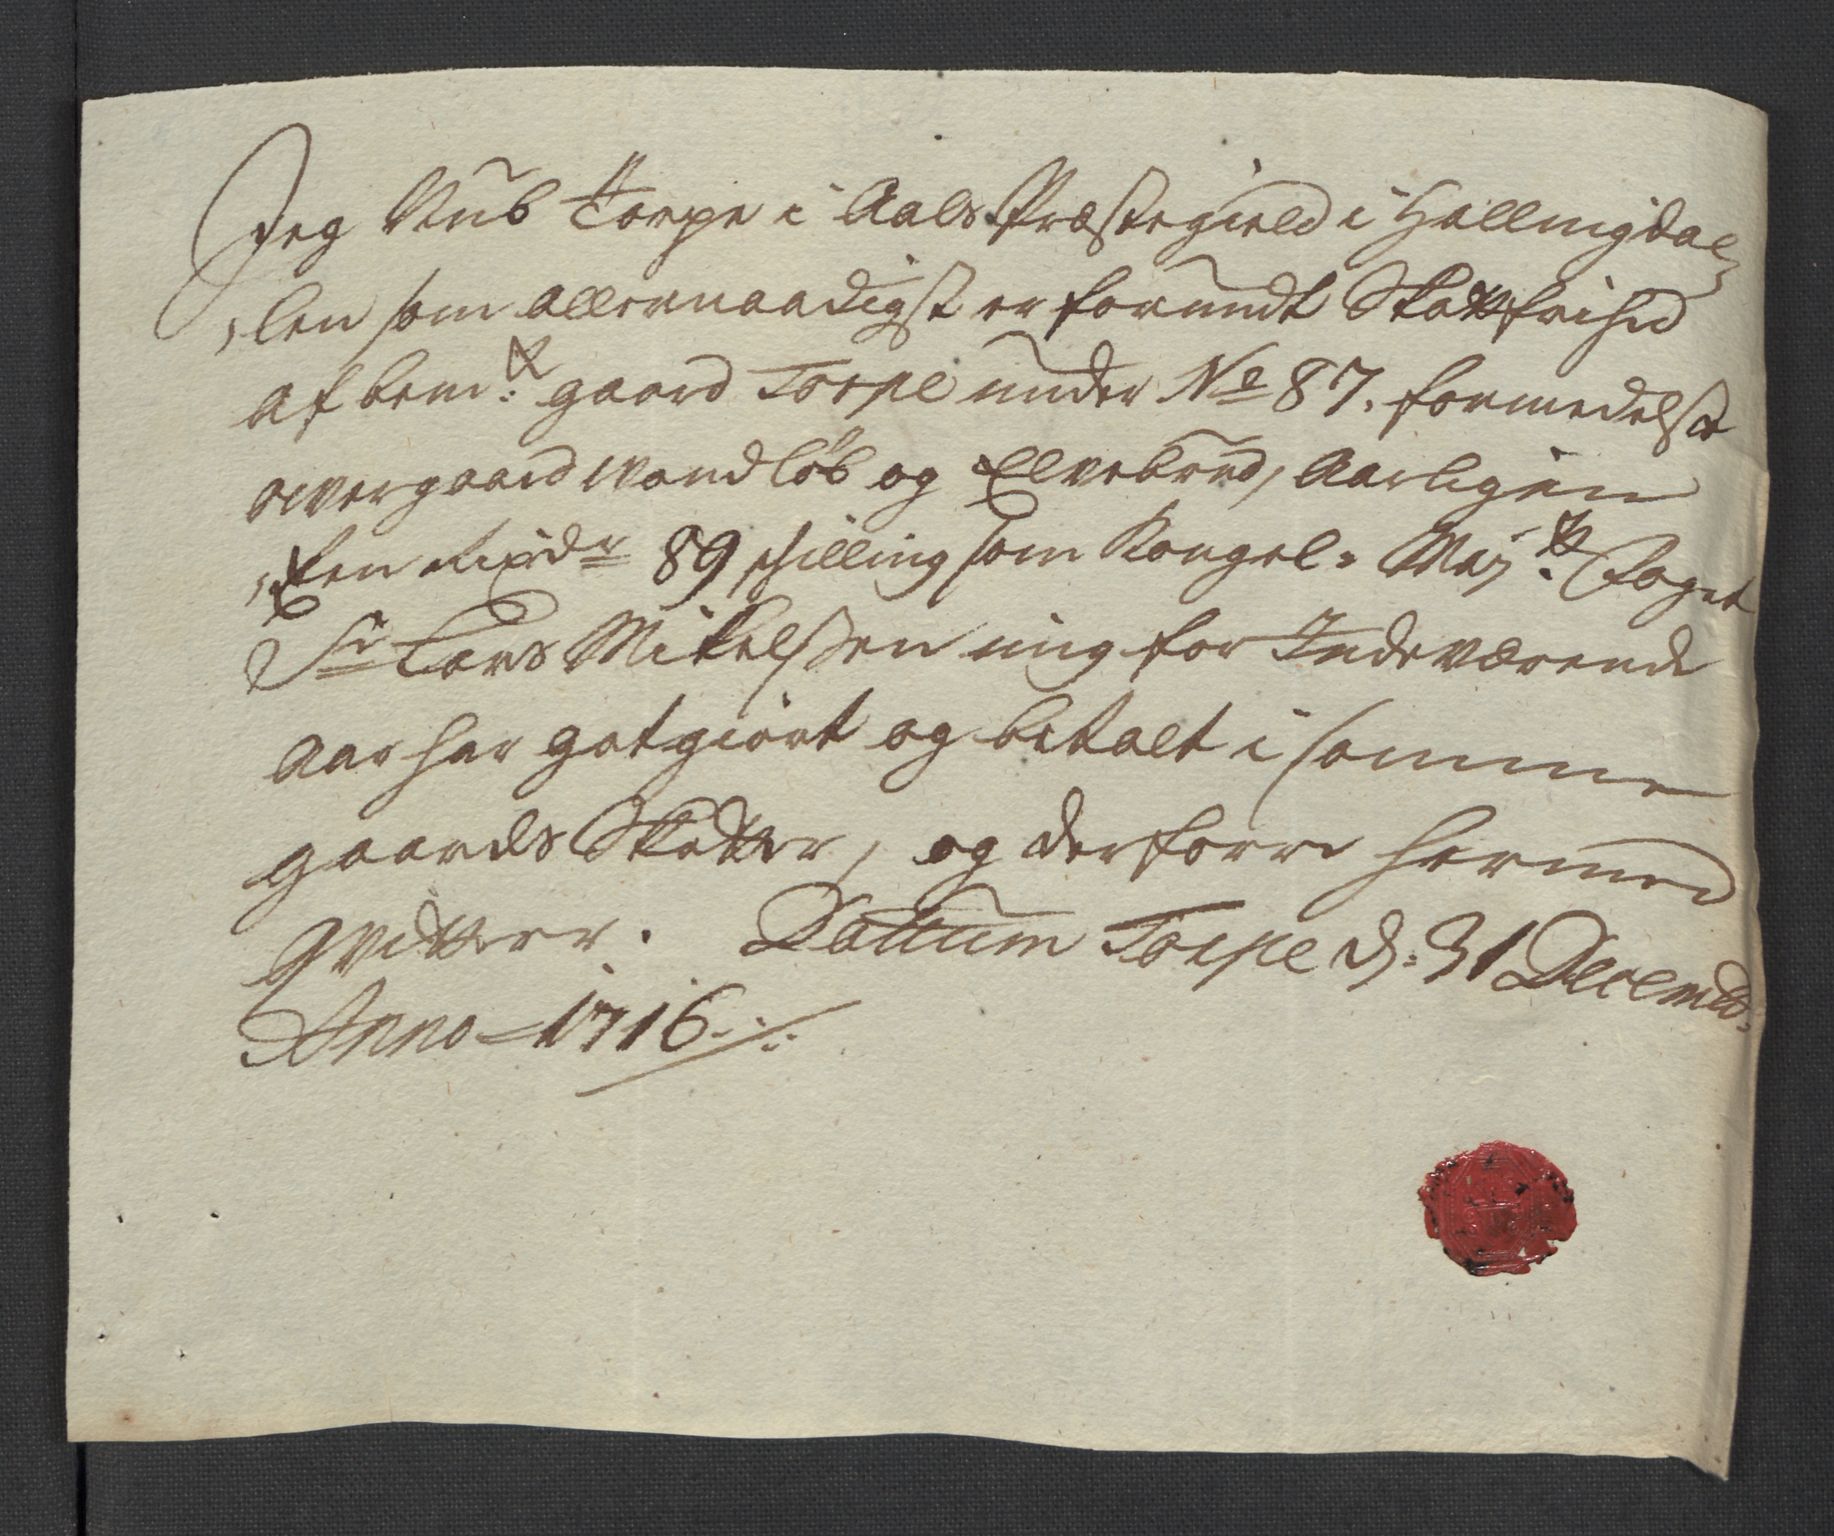 Jeg Torpe i Aals Præstegield i Hallingdal¬
len som allernaadigst er forundt Skattfrihed
af bem:te gaard Torpe under No 87. formedelst
overgaaed Vandløb og Elvebrud, Aarligen
Een Rixdr 89 skilling som Kongel: Maj:ts Foget
Sr Lars Mikelssen mig for Indeværende
Aar har gotgiort og betalt i samme
gaards Skatter, og derforre hermed
qvitterer. Dattum Torpe d: 31 Decemb:
Anno 1716